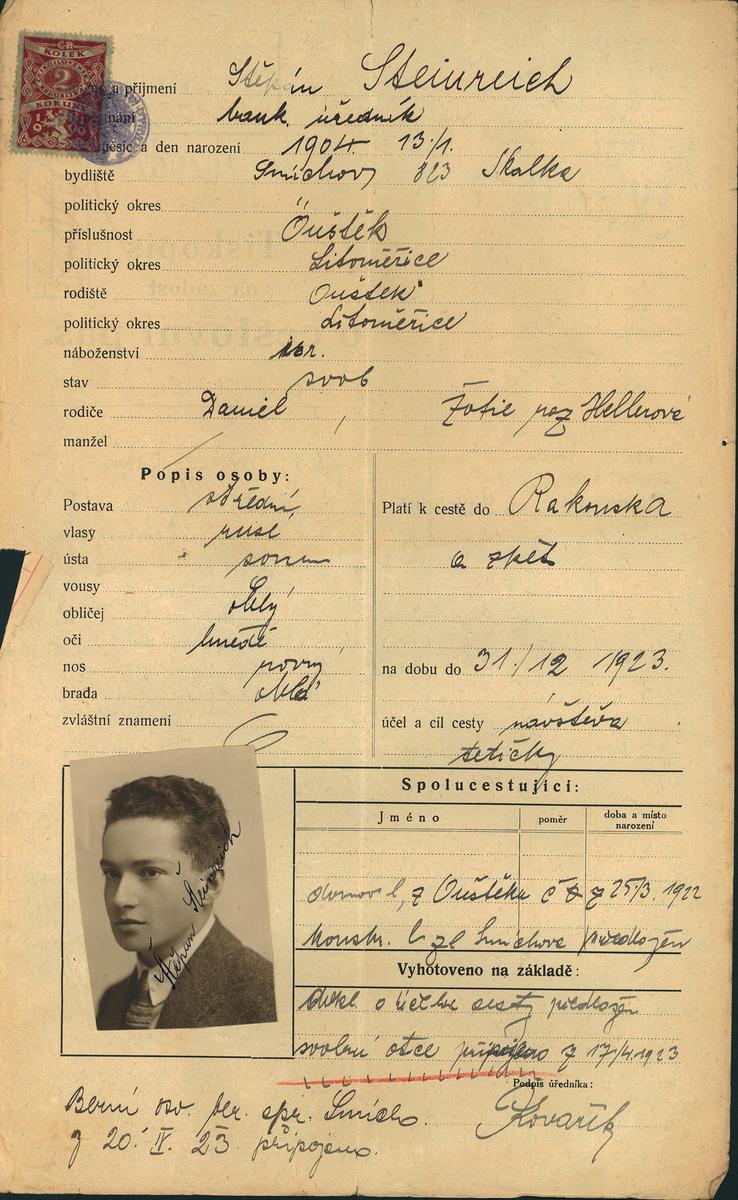 ČR
KOLEK
2
KORUNY
a příjmení Štěpán Steinreich
bank. úředník
měsíc a den narození 1904 13/1.
bydliště Smíchov, 323 Skalka
politický okres "
příslušnost Ouštěk
politický okres Litoměřice
rodiště Ouštěk
politický okres Litoměřice
náboženství izr.
stav svob
rodiče Daniel, Žofie roz Hellerová
manžel
Popis osoby:
Postava střední,
vlasy rusé
ústa soum
vousy
obličej oblý
oči hnědé
nos rovný
brada oblá
zvláštní znamení
Platí k cestě do Rakouska
a zpět
na dobu do 31./12 1923.
účel a cíl cesty návštěva
tetičky
Štěpán Steinreich
Spolucestující:
Jméno poměr doba a místo narození
domov l, z Ouštěka č z 25/3. 1922
l ze Smíchova předložen
Vyhotoveno na základě:
dokl. o účelu cesty předložen
svolení otce připojeno z 17/4 1923
Podpis úředníka:
Kovařík
Berní osv. ber. spr. Smíchov.
z 20. IV. 23 připojeno.